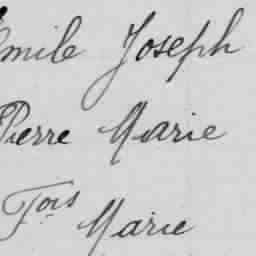 Emile Joseph
Pierre Marie
Fois Marie